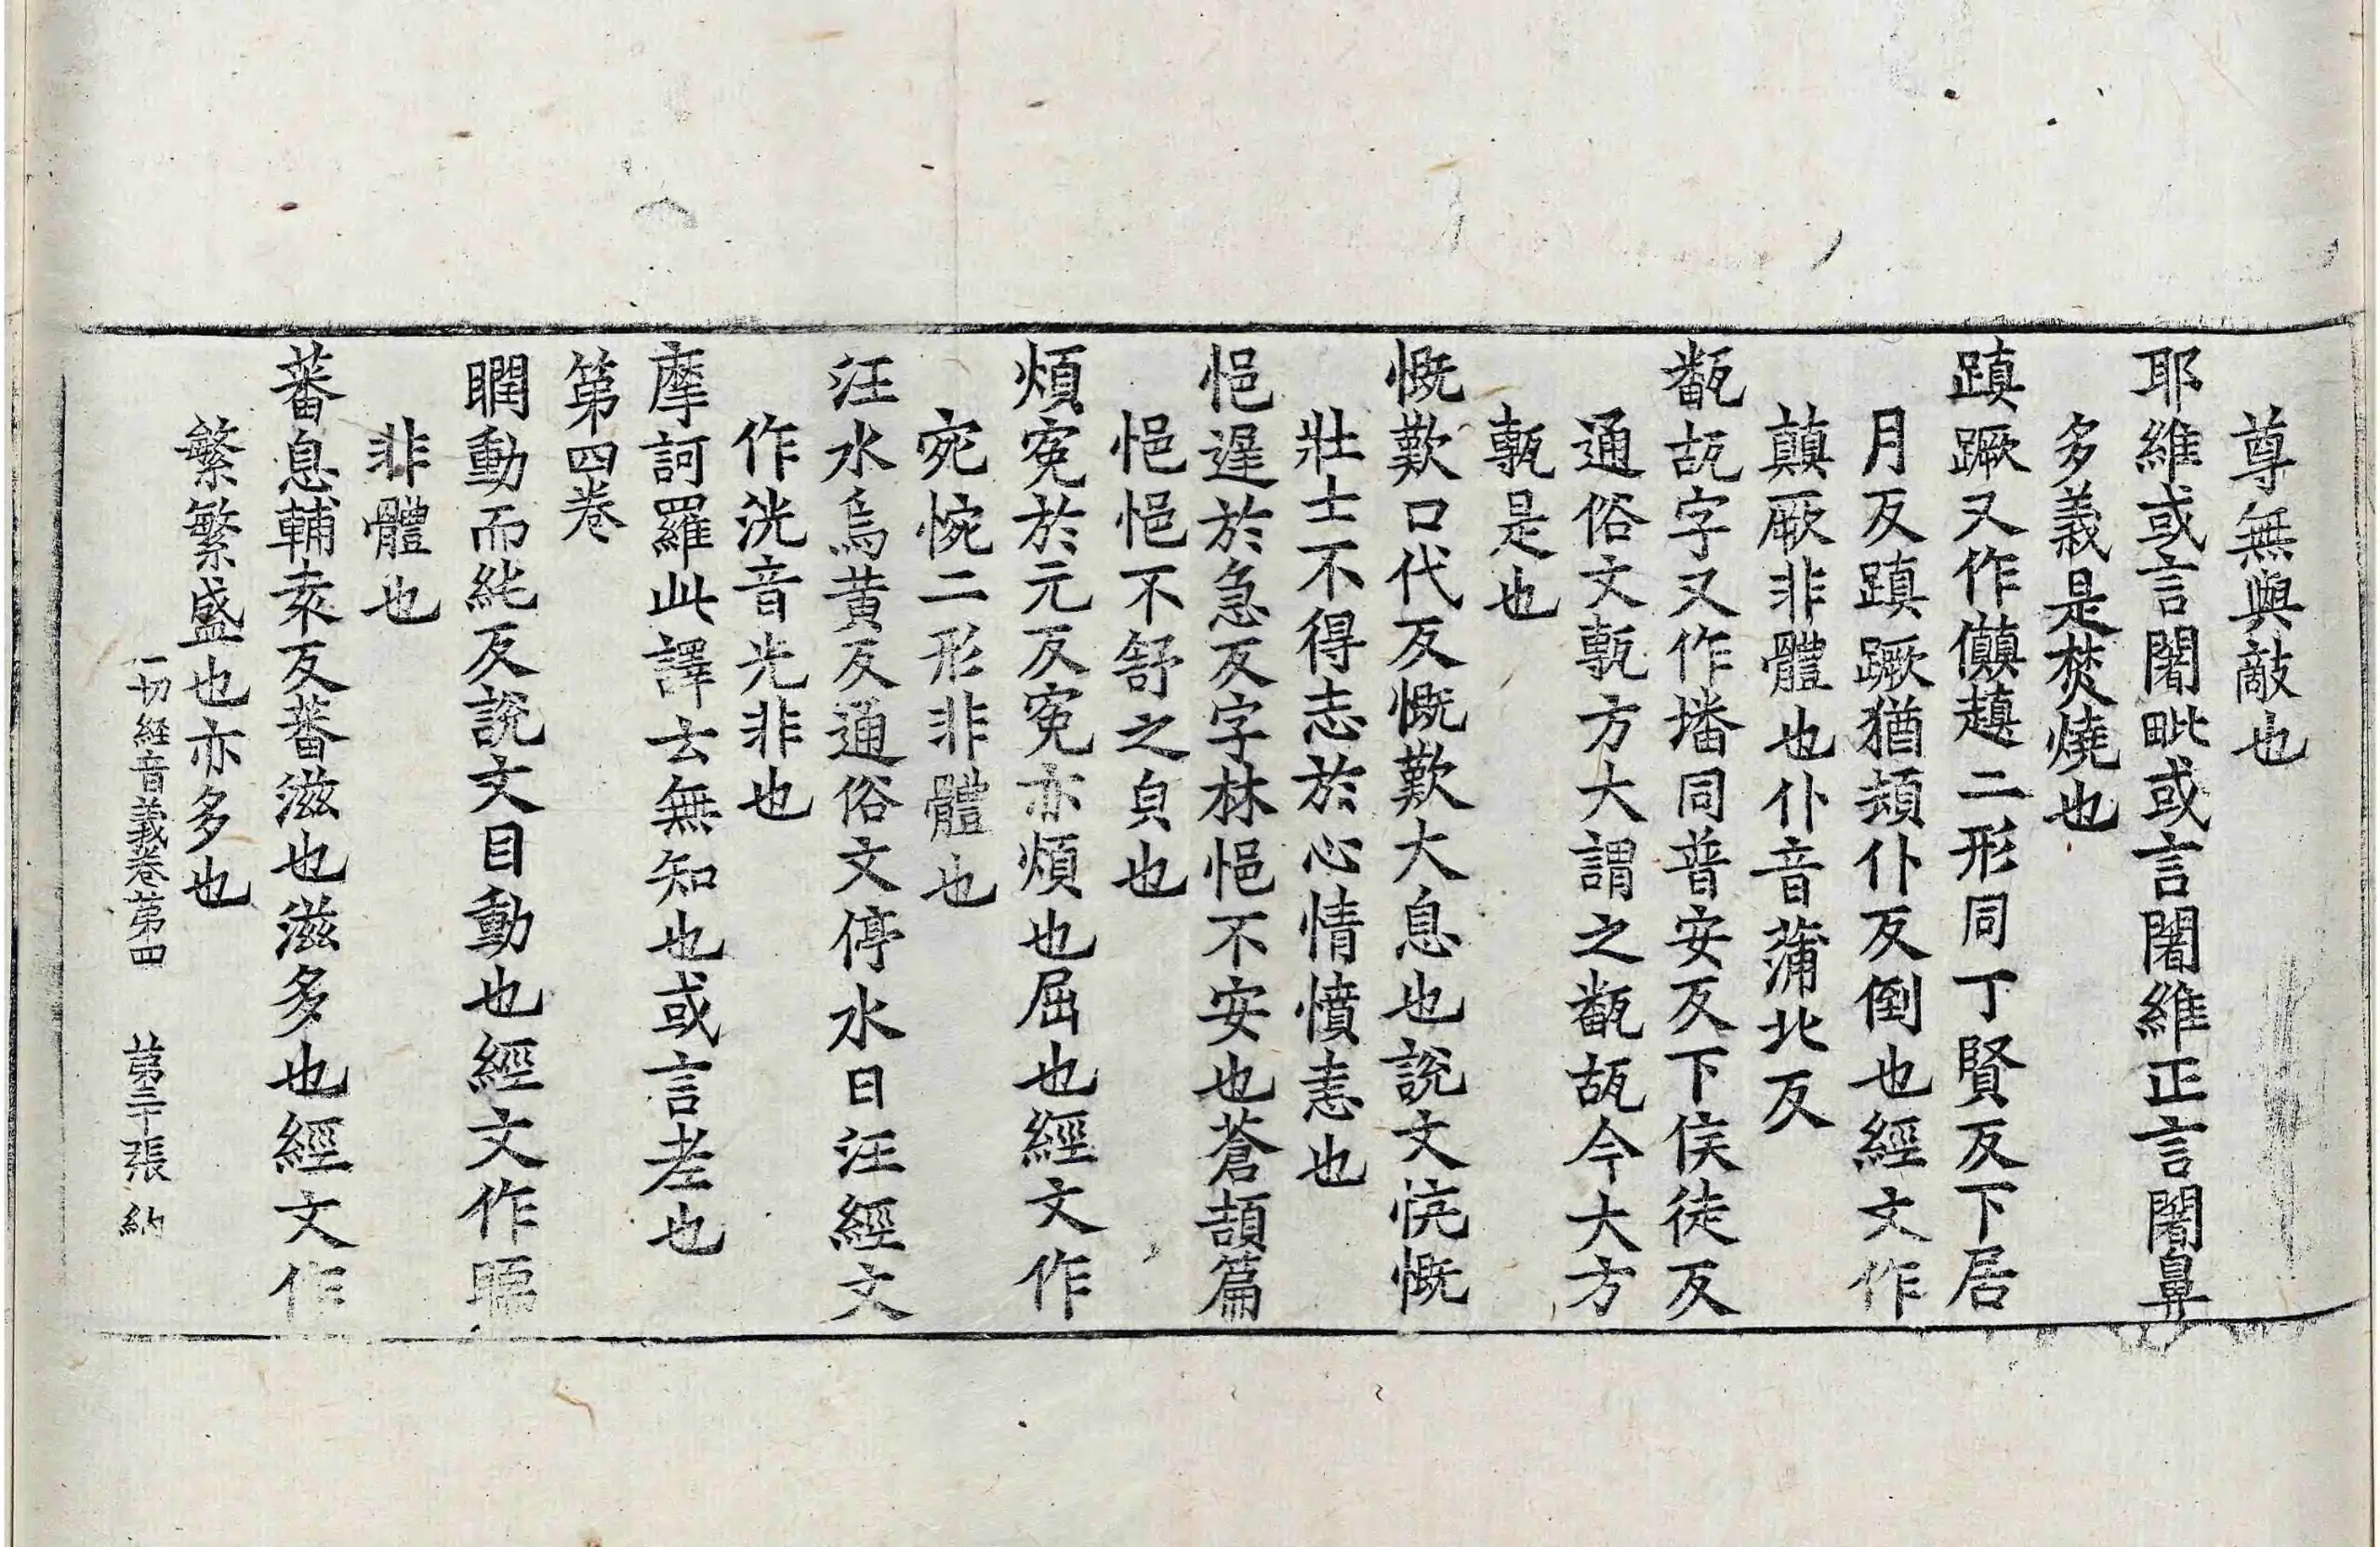 尊無與敵也
耶維或言闍毗或言闍維正言闍鼻
多義是焚燒也
蹎蹶又作傎趚二形同丁賢反下居
月反蹎蹶猶頓仆反倒也經文作
蹎厥非體也仆音蒲北反
㽃瓳字又作墦同普安反下侯徒反
通俗文甎方大謂之㽃瓳今大方
甎是也
慨歎口代反慨歎大息也說文忼慨
壯士不得志於心情憤恚也
悒遟於急反字林悒不安也蒼頡篇
悒悒不舒之皃也
煩寃於元反寃亦煩也屈也經文作
宛惋二形非體也
汪水烏黃反通俗文停水曰汪經文
作洸音光非也
摩訶羅此譯云無知也或言老也
第四卷
瞤動而純反說文目動也經文作
非體也
蕃息輔袁反蕃滋也滋多也經文作
繁繁盛也亦多也
一切經音義卷第四 第三十張 納